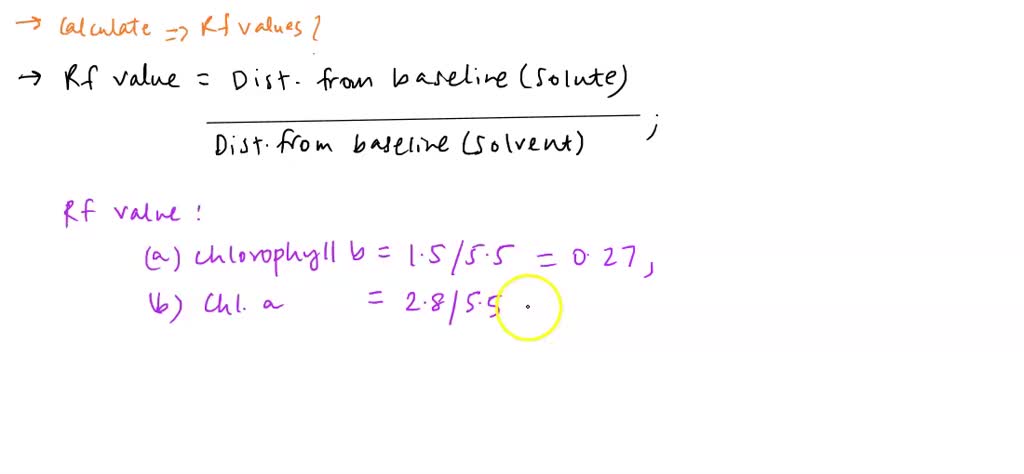 → Calculate => Rf values?
→ Rf value = Dist. from baseline (solute)
Dist. from baseline (solvent) ;
Rf value :
(a) chlorophyll b = 1.5/5.5 = 0.27,
(b) Chl. a = 2.8/5.5